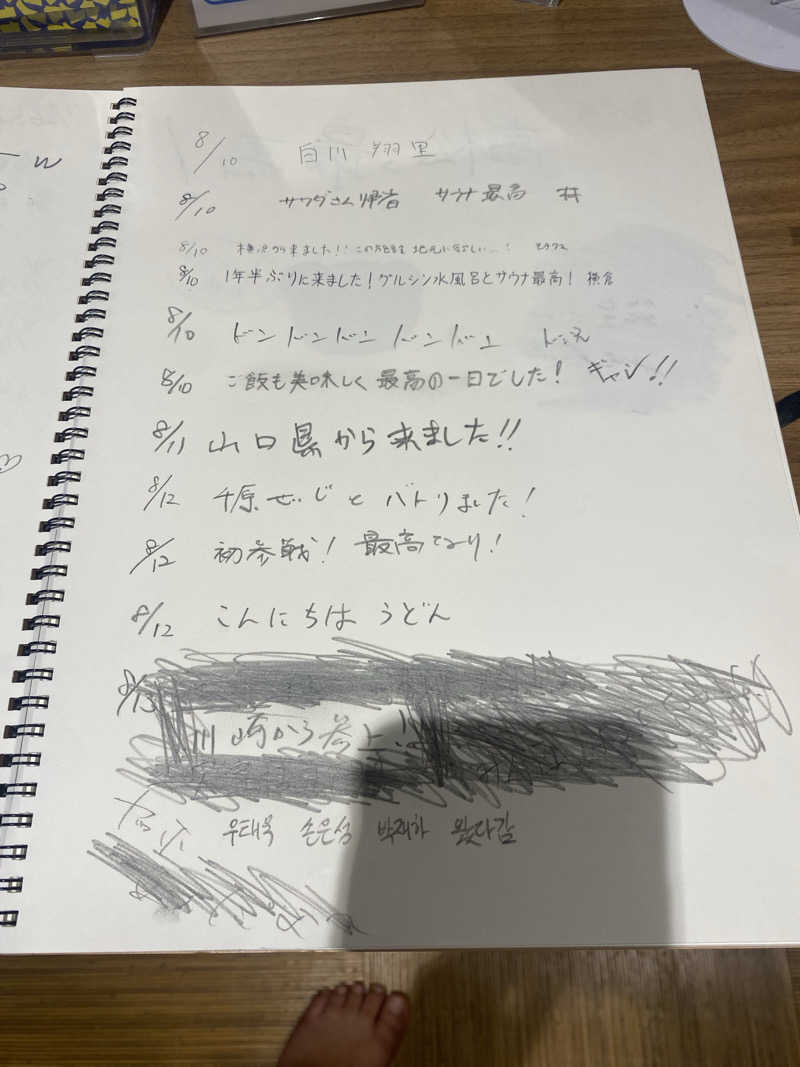 8/10 白川 翔里
8/10 サワダさん帰省 サウナ最高 林
8/10 横浜から来ました!! この施設 地元に欲しい…!
8/10 1年半ぶりに来ました!グルシン水風呂とサウナ最高! 横倉
8/10 ドンドンドン ドンドン
8/10 ご飯も美味しく最高の一日でした! ギャン!!
8/11 山口県から来ました!!
8/12 千原せいじとバトりました!
8/12 初参戦! 最高でーす!
8/12 こんにちは うどん
8/13 川崎から参上!
우태욱 손은성 박재하 왔다감